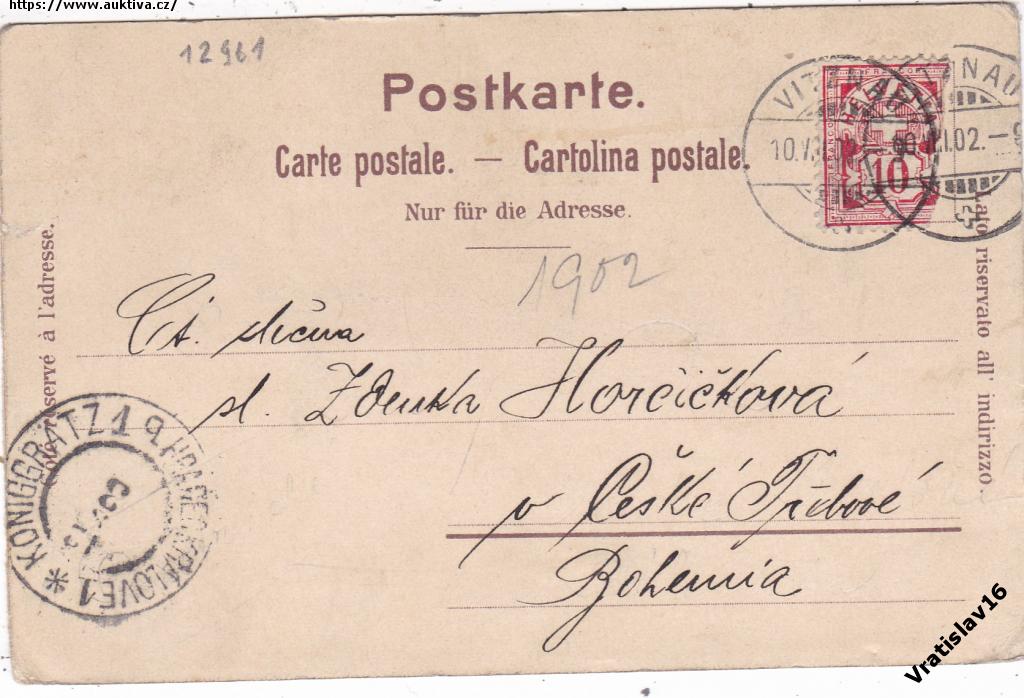 https://www.auktiva.cz/
12961
Postkarte.
Carte postale. — Cartolina postale.
Nur für die Adresse.
VITZNAU
10.VI.02.
10
1902
Côté réservé à l'adresse.
Lato riservato all' indirizzo.
Ct. slečna
sl. Zdenka Horčičková
v České Třibové
Bohemia
KÖNIGGRÄTZ 1 HRADEC KRÁLOVÉ 1
Vratislav16